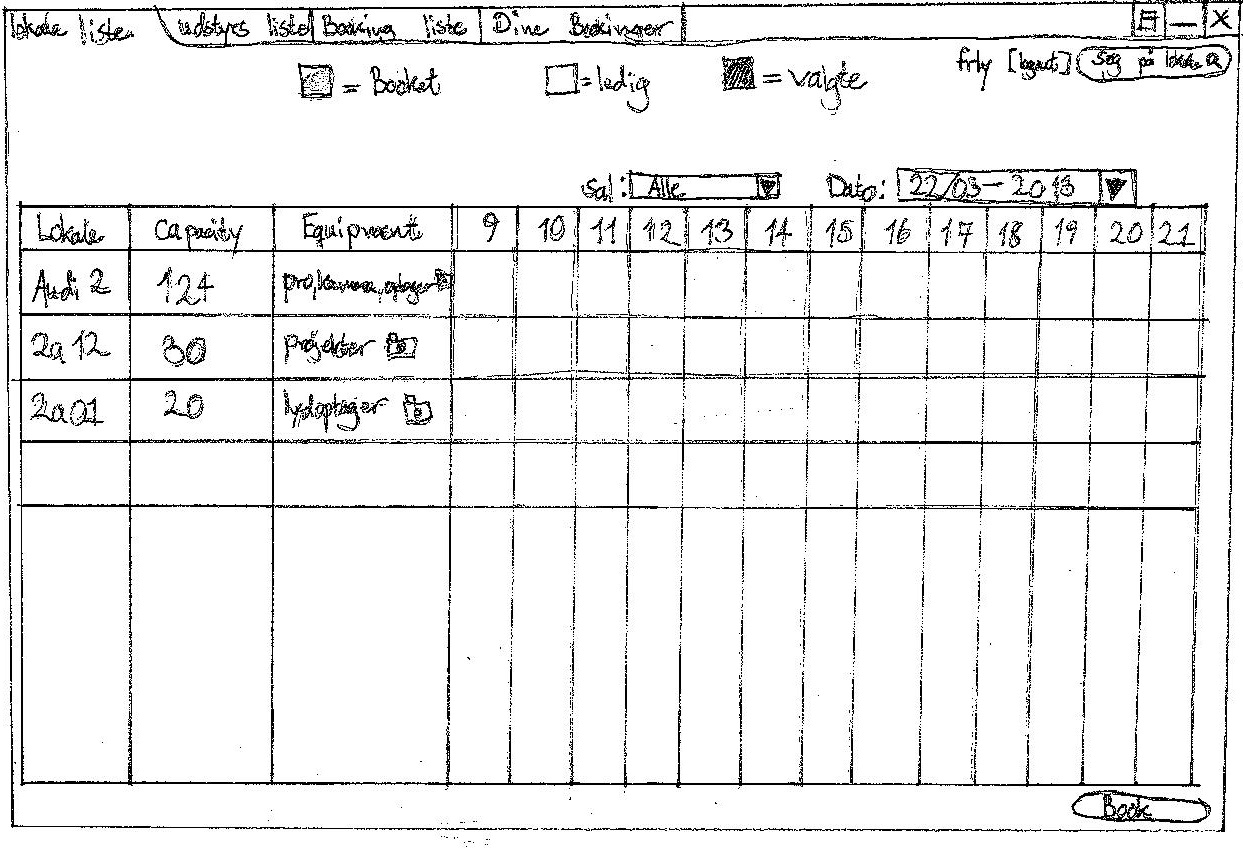 lokale liste udstyrs liste Booking liste Dine Bookinger
= Booket = ledig = valgte frly [logout] Søg på lokale
Sal: Alle Dato: 22/03-2013
Lokale Capacity Equipment 9 10 11 12 13 14 15 16 17 18 19 20 21
Audi 2 124 pro, kamera, optager
2a12 30 projektor
2a01 20 lydoptager
Book